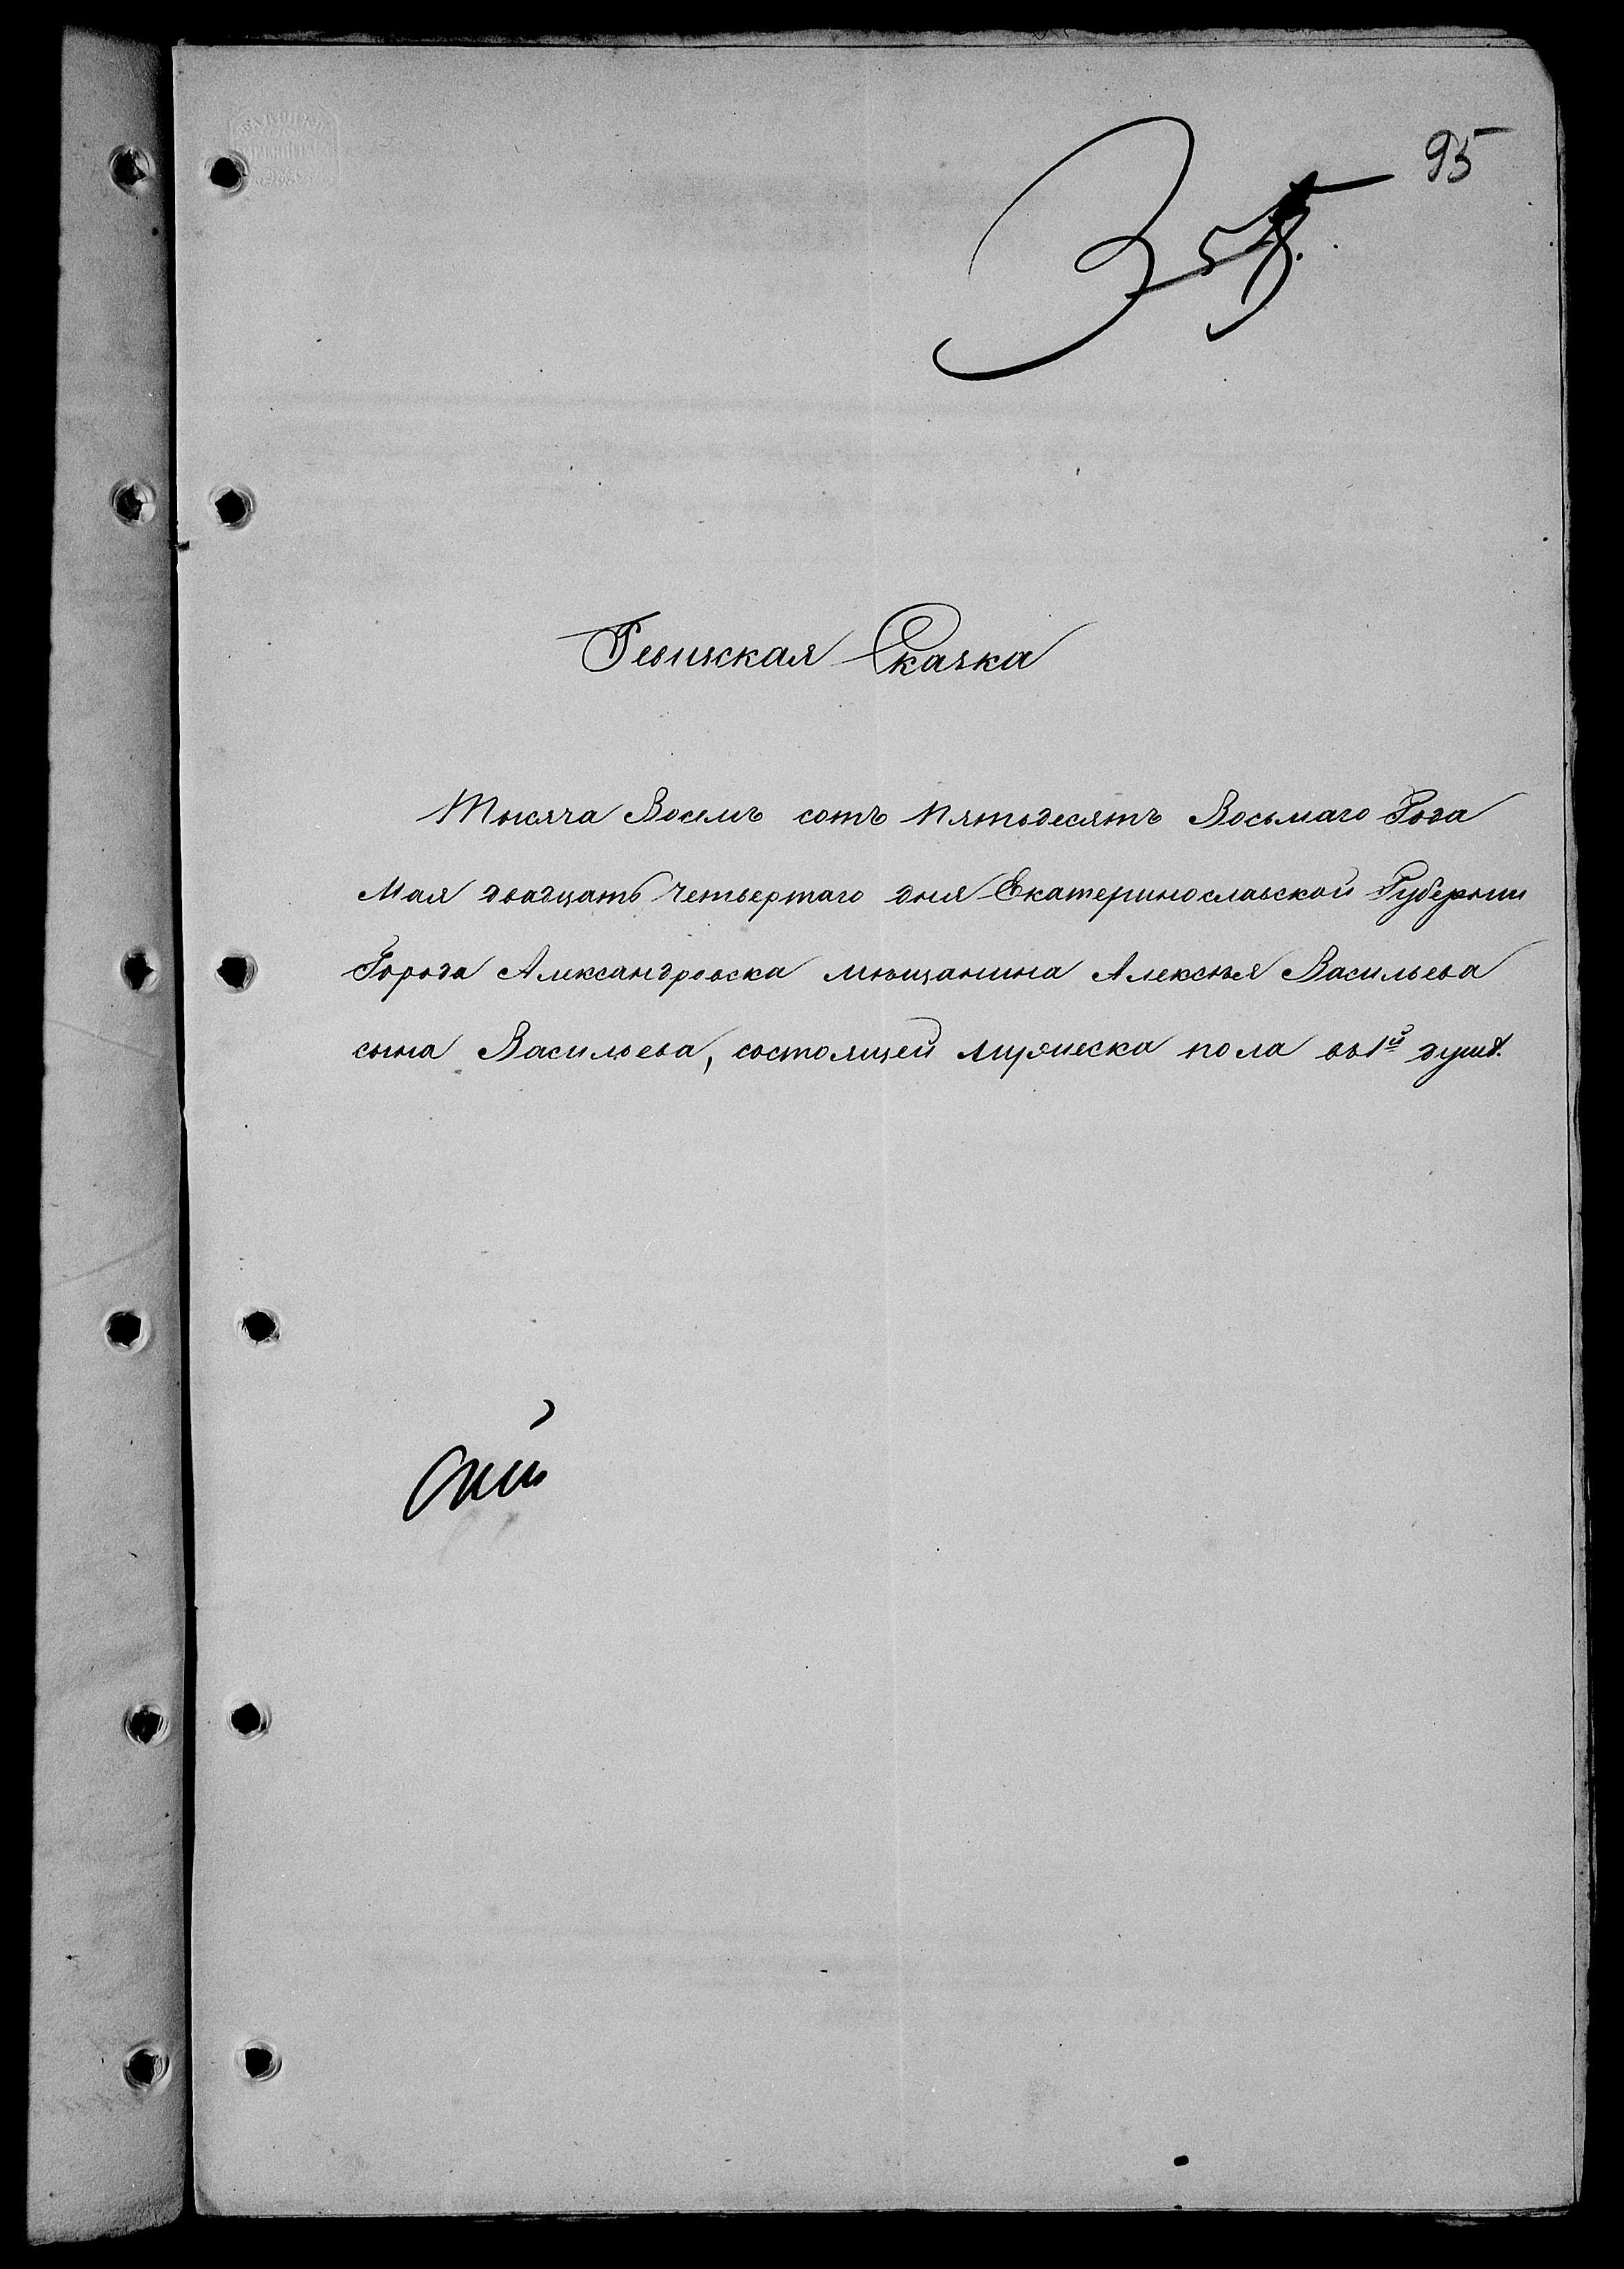 95
355.
Ревизская Сказка
Тысяча Восемъ сотъ Пятьдесятъ Восьмаго Года
Мая двадцать Четвертаго дня Екатеринославской Губернии
Города Александровска мѣщанина Алексѣя Васильева
сына Васильева, состоящей мужеска пола въ 1й душѣ.